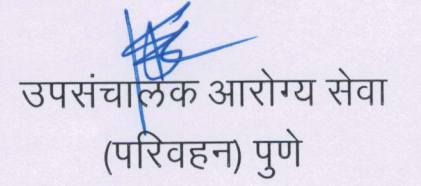 उपसंचालक आरोग्य सेवा
(परिवहन) पुणे